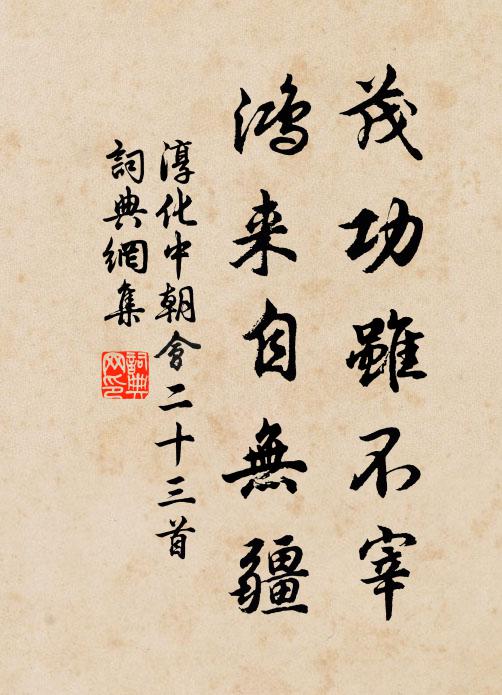 茂功雖不宰
鴻来自無疆
淳化中朝會二十三首
詞典網集
詞典网印